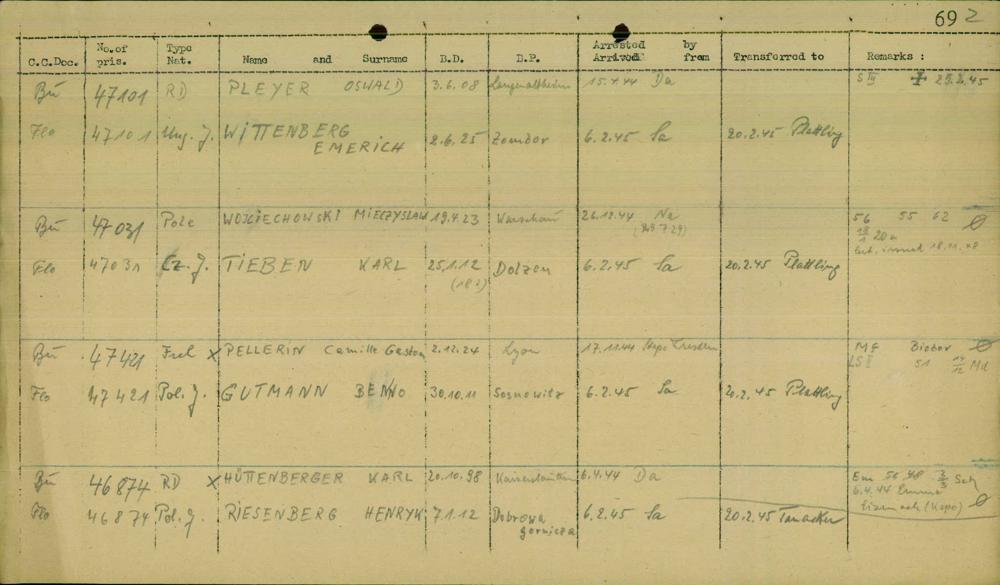 69 2
C.C.Doc. No.of pris. Type Nat. Name and Surname B.D. B.P. Arrested Arrived by from Transferred to Remarks :
Bu 47101 RD PLEYER OSWALD 3.6.08 Langenaltheim 15.4.44 Da S III 25.2.45
Flo 47101 Ung. J. WITTENBERG EMERICH 2.6.25 Zombor 6.2.45 Sa 20.2.45 Plattling
Bu 47031 Pole WOJCIECHOWSKI MIECZYSLAW 19.4.23 Warschau 26.12.44 Na 56 55 62
20a
18.11.48
Flo 47031 Cz. J. TIEBEN KARL 25.1.12 Dolzen 6.2.45 Sa 20.2.45 Plattling
Bu 47421 x PELLERIN Camille Gaston 2.12.24 Lyon 17.11.44 MF
LS II 51 14/12 Md
Flo 47421 Pol. J. GUTMANN BENNO 30.10.11 Sosnowitz 6.2.45 Sa 20.2.45 Plattling
Bu 46874 RD x HÜTTENBERGER KARL 20.10.98 Kaiserslautern 6.4.44 Da 56 48 3/3 Sch
6.4.44
Eisenach (Kopo)
Flo 46874 Pol. J. RIESENBERG HENRYK 7.1.12 Dobrowa gornicza 6.2.45 Sa 20.2.45